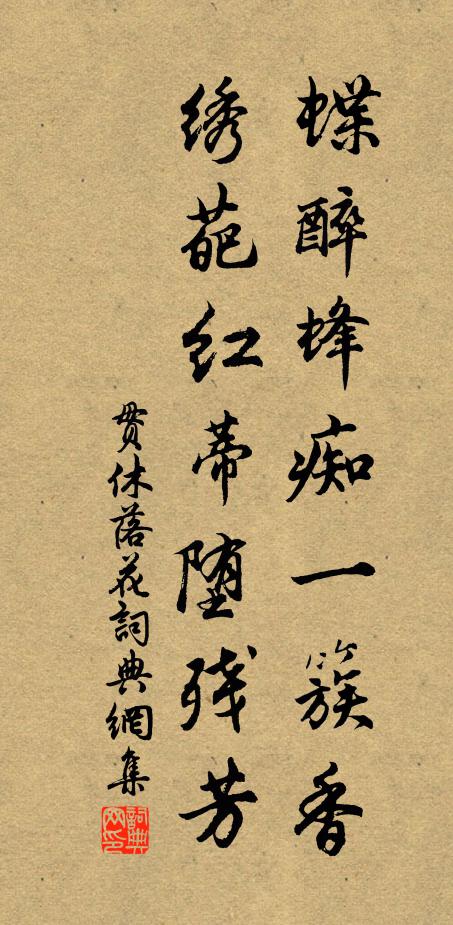 蝶醉蜂痴一簇香
绣葩红蒂堕残芳
贯休落花詞典網集
詞典網印